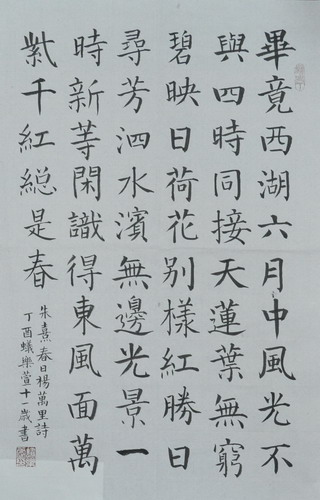 畢竟西湖六月中風光不
與四時同接天蓮葉無窮
碧映日荷花别樣紅勝日
尋芳泗水濱無邊光景一
時新等閑識得東風面萬
紫千紅総是春
朱熹春日楊萬里詩
丁酉蟻樂萱十一歲書